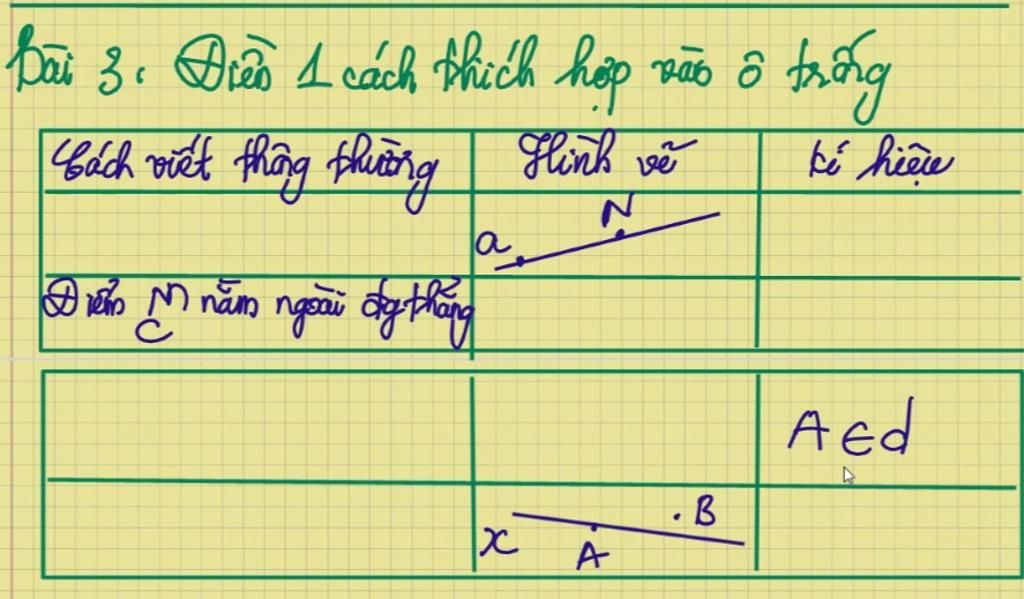 Bài 3: Điền 1 cách thích hợp vào ô trống
Cách viết thông thường Hình vẽ kí hiệu
a N
Điểm M nằm ngoài đg thẳng
c
A ∈ d
x A B